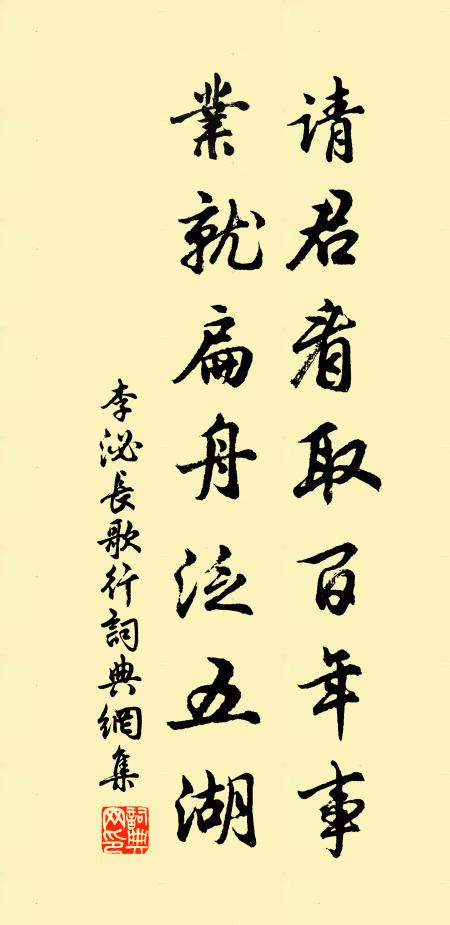 请君看取百年事
業就扁舟泛五湖
李泌長歌行詞典網集
詞典網印